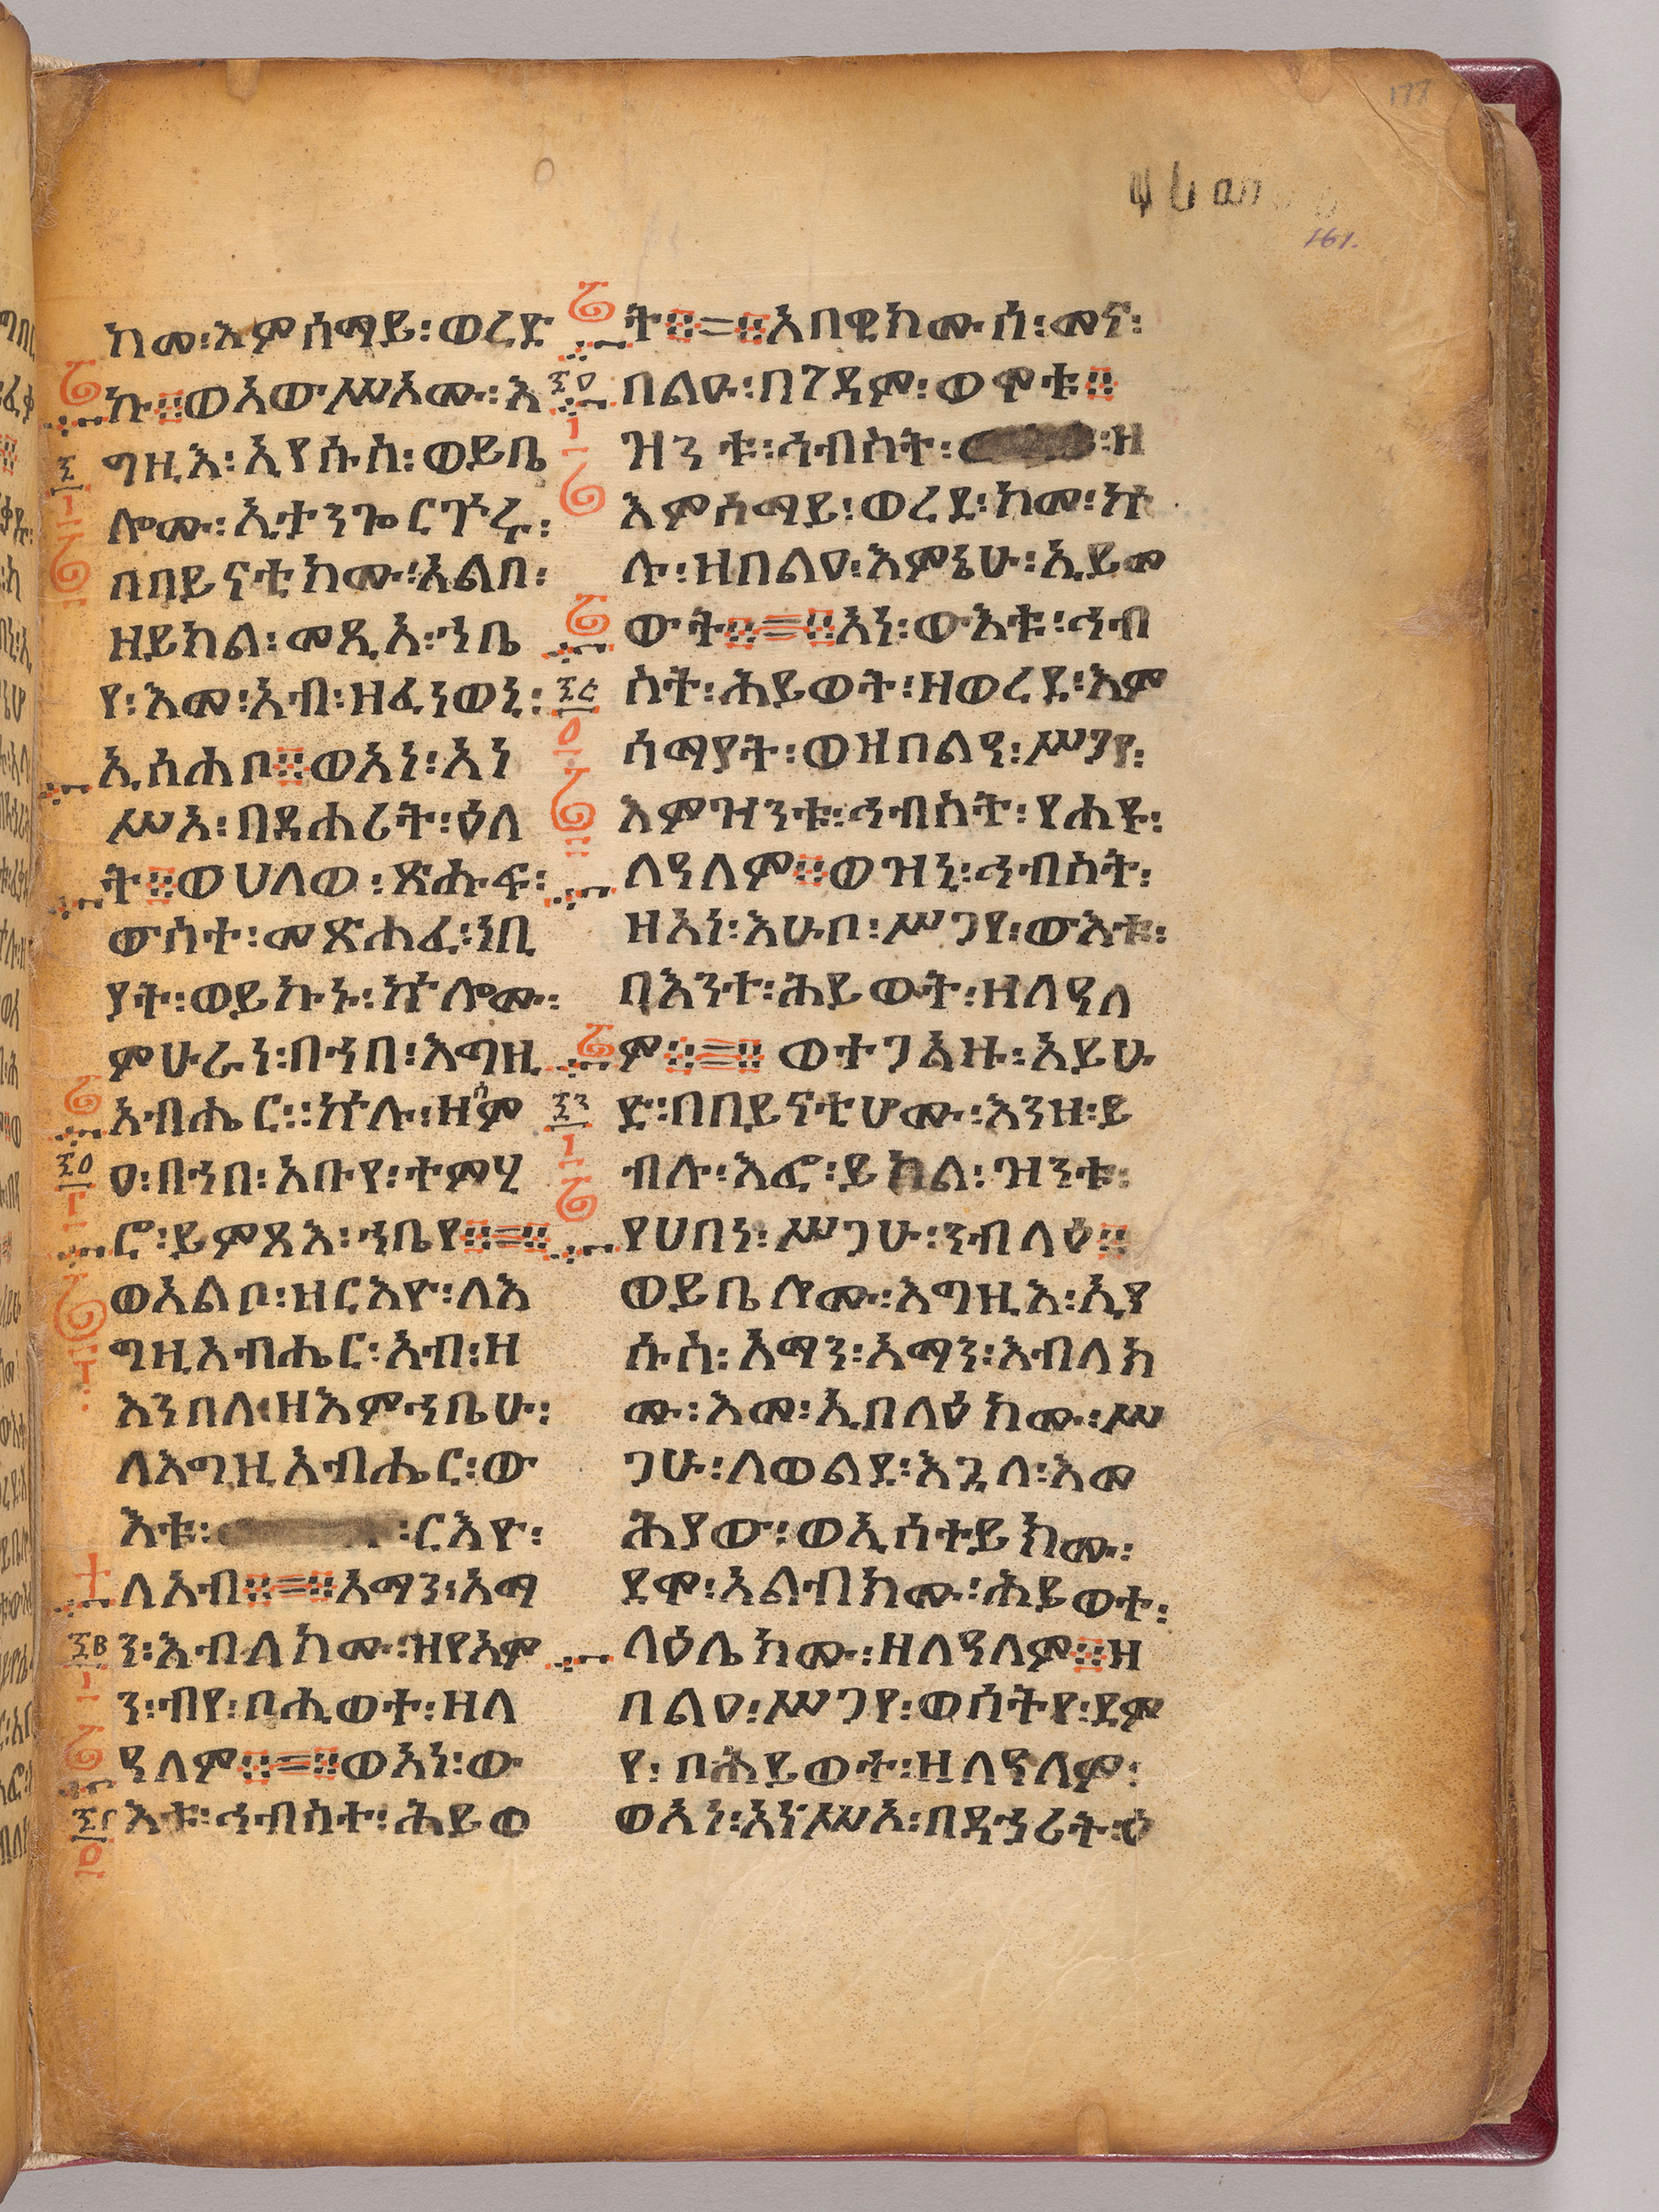 ከመ፡እምሰማይ፡ወረድ
ኩ፨ወአውሥአሙ፡እ
ግዚእ፡ኢየሱስ፡ወይቤ
ሎሙ፡ኢታንጐርጕሩ፡
በበይናቲክሙ፡አልቦ፡
ዘይክል፡መጺአ፡ኀቤ
የ፡እመ፡አብ፡ዘፈነወኒ፡
ኢሰሐቦ፨ወአነ፡አነ
ሥአ፡በደሐሪት፡ዕለ
ት፨ወሀለወ፡ጽሑፍ፡
ውስተ፡መጽሐፈ፡ነቢ
ያት፡ወይኩኑ፡ኵሎሙ፡
ምሁራነ፡በኀበ፡እግዚ
አብሔር፡፡ኵሉ፡ዘሰም
ዐ፡በኀበ፡አቡየ፡ተምሂ
ሮ፡ይምጻእ፡ኀቤየ፨=፨
ወአልቦ፡ዘርእዮ፡ለእ
ግዚአብሔር፡አብ፡ዘ
እንበለ፡ዘእምኀቤሁ፡
ለእግዚአብሔር፡ው
እቱ፡ ፡ርእዮ፡
ለአብ፨=፨አማን፡አማ
ን፡እብለክሙ፡ዝየአም
ን፡ብየ፡ቦሒወተ፡ዘለ
ዓለም፨=፨ወአነ፡ው
እቱ፡ኅብስተ፡ሕይወ
ት፨=፨አበዊክሙሰ፡መና፡
በልዑ፡በገዳም፡ወሞቱ፨
ዝንቱ፡ኅብስት፡ ፡ዘ
እምሰማይ፡ወረደ፡ከመ፡ኵ
ሉ፡ዘበልዐ፡እምኔሁ፡ኢይመ
ውት፨=፨አነ፡ውእቱ፡ኅብ
ስት፡ሕይወት፡ዘወረደ፡እም
ሰማያት፡ወዝበልዓ፡ሥጋየ፡
እምዝንቱ፡ኅብስት፡የሐዩ፡
ለዓለም፨ወዝኒ፡ኅብስት፡
ዘአነ፡እሁቦ፡ሥጋየ፡ውእቱ፡
በእንተ፡ሕይወት፡ዘለዓለ
ም፨=፨ወተጋአዙ፡አይሁ
ድ፡በበይናቲሆሙ፡እንዘ፡ይ
ብሉ፡እፎ፡ይክል፡ዝንቱ፡
የሀበነ፡ሥጋሁ፡ንብላዕ፨
ወይቤሎሙ፡እግዚእ፡ኢየ
ሱስ፡አማን፡አማን፡እብለክ
ሙ፡እመ፡ኢበላዕክሙ፡ሥ
ጋሁ፡ለወልደ፡እጓለ፡እመ
ሕያው፡ወኢሰተይክሙ፡
ደሞ፡አልብክሙ፡ሕይወተ፡
ላዕሌክሙ፡ዘለዓለም፨ዘ
በልዐ፡ሥጋየ፡ወሰትየ፡ደም
የ፡ቦሕይወተ፡ዘለዓለም፡
ወአነ፡አነሥአ፡በደኃሪት፡ዕ
177
161.